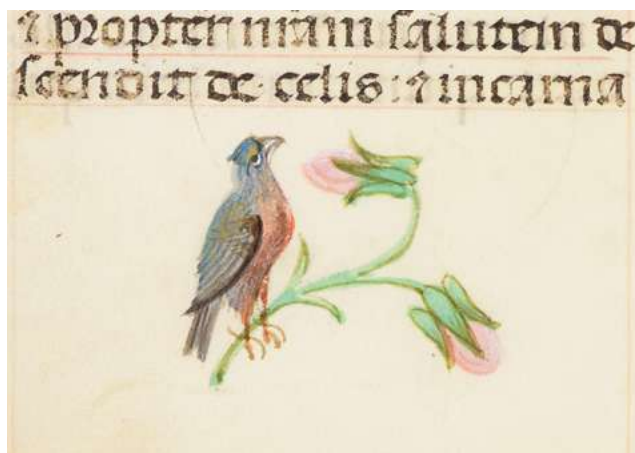 ⁊ propter nr̃am salutem de
scendit de celis : ⁊ incarna